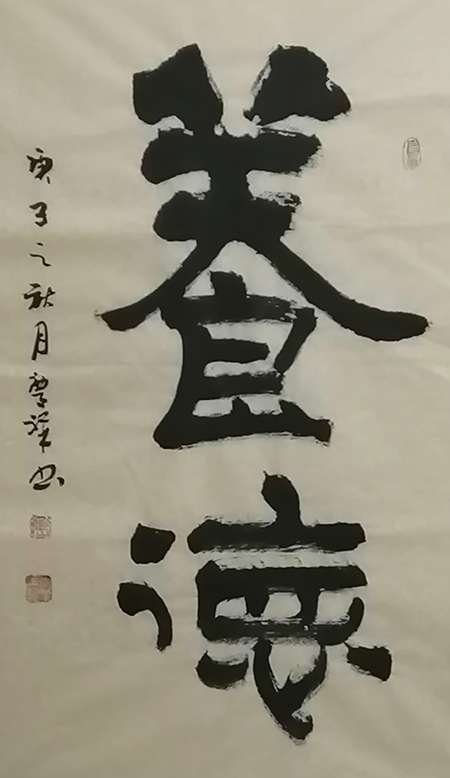 養德
庚子之秋月